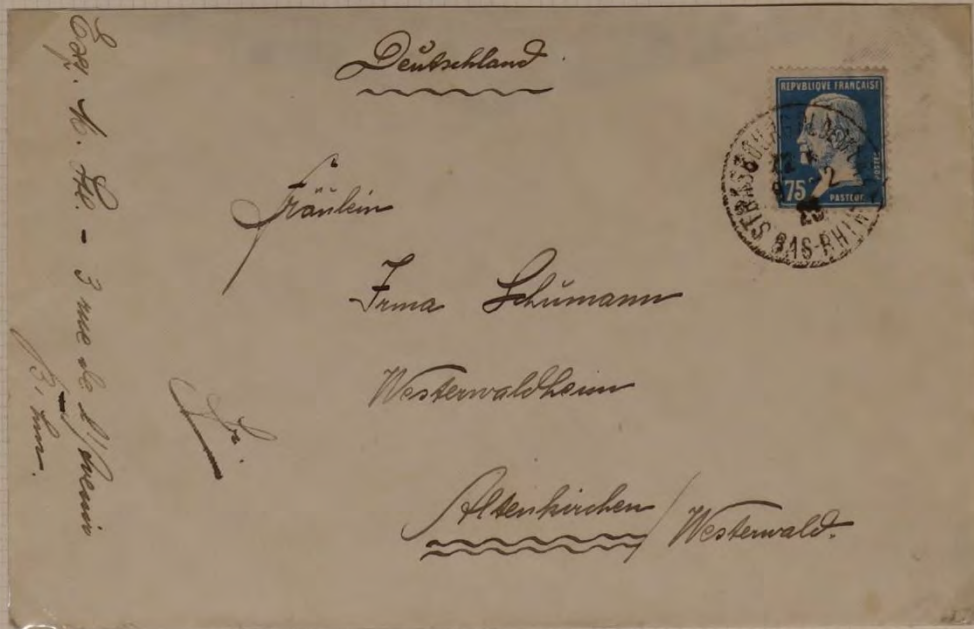 Deutschland
REPVBLIQUE FRANÇAISE
POSTES
75
PASTEUR
STRASBOURG
BAS-RHIN
Fräulein
Irma Schumann
Westerwaldheim
Altenkirchen / Westerwald.
Exp. M. - 3 rue de l'Avenir